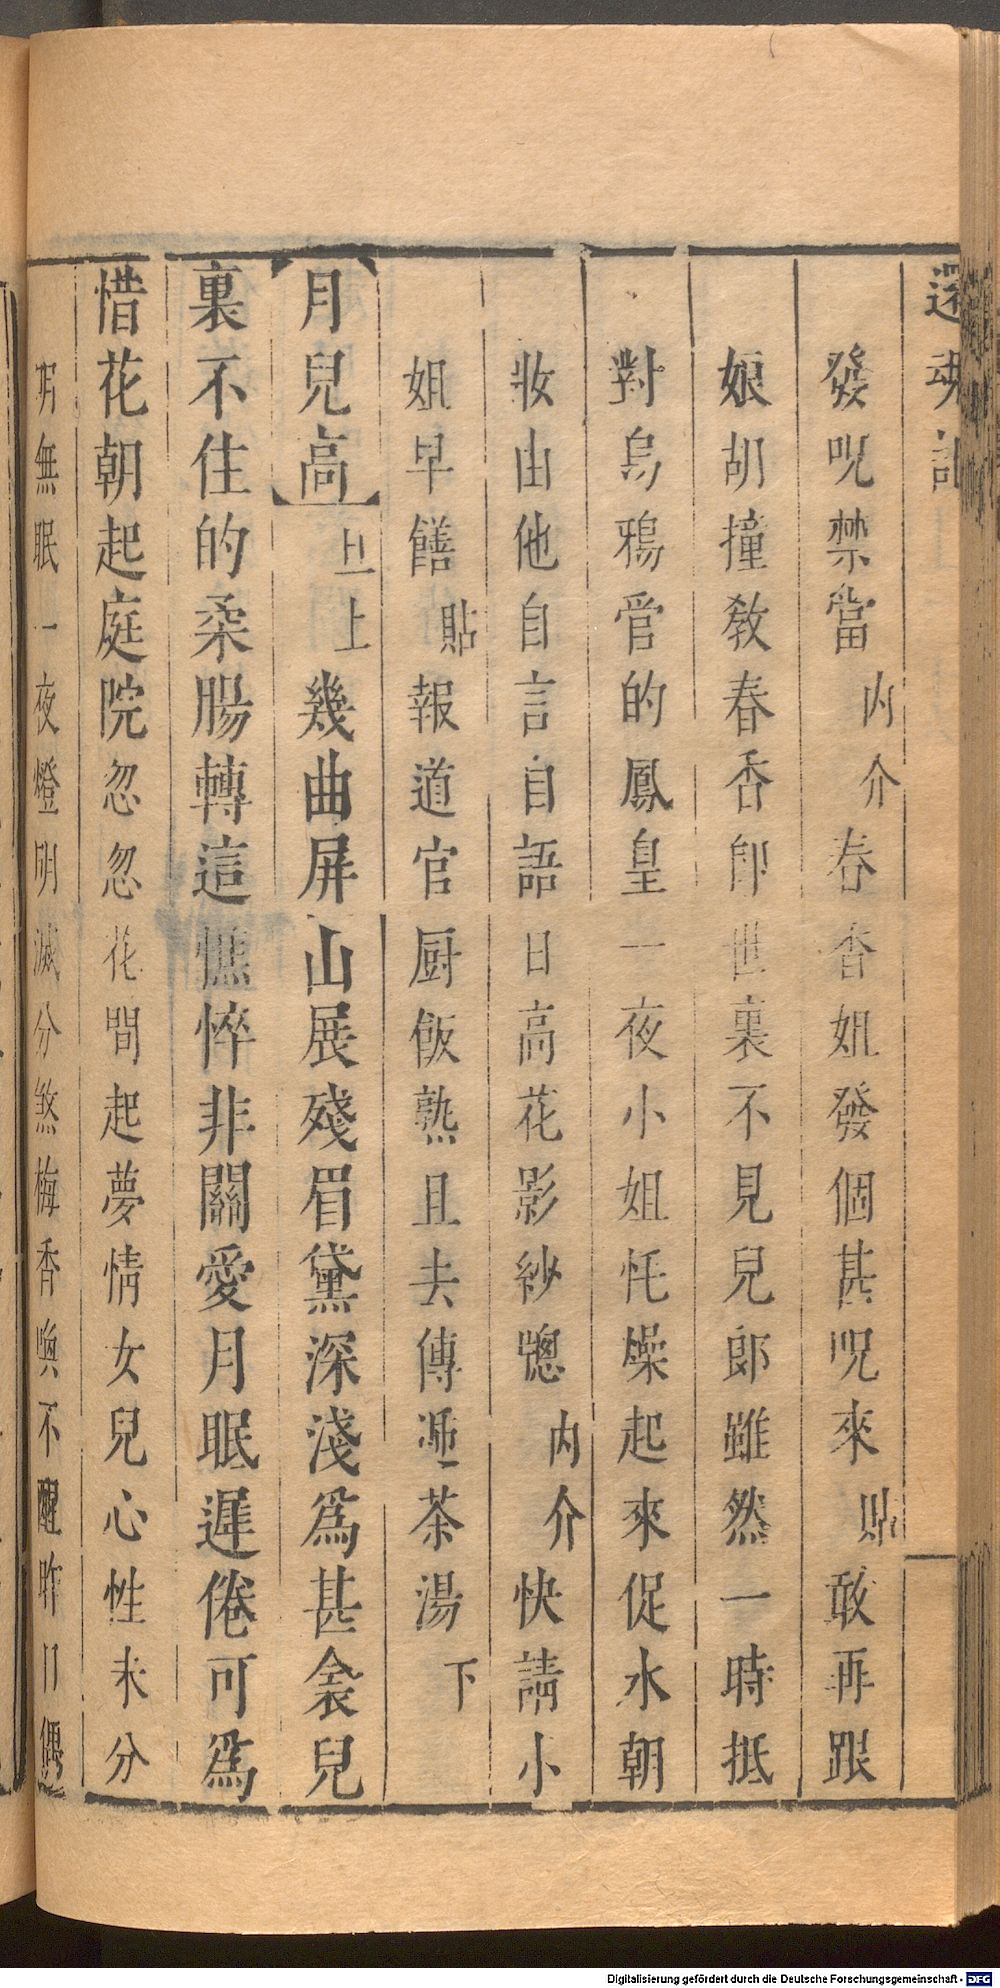 還魂記
發咒禁當內介春香姐發個甚咒來貼敢再跟
娘胡撞教春香卽世裏不見兒郎雖然一時抵
對烏鴉管的鳳皇一夜小姐恅燥起來促水朝
妝由他自言自語日高花影紗䆫內介快請小
姐早饍貼報道官厨飯熟且去傳遞茶湯下
月兒高旦上幾曲屏山展殘眉黛深淺爲甚衾兒
裏不住的柔腸轉這憔悴非關愛月眠遲倦可爲
惜花朝起庭院忽忽花間起夢情女兒心性未分
明無眠一夜燈明滅分煞梅香喚不醒昨日偶
Digitalisierung gefördert durch die Deutsche Forschungsgemeinschaft - DFG